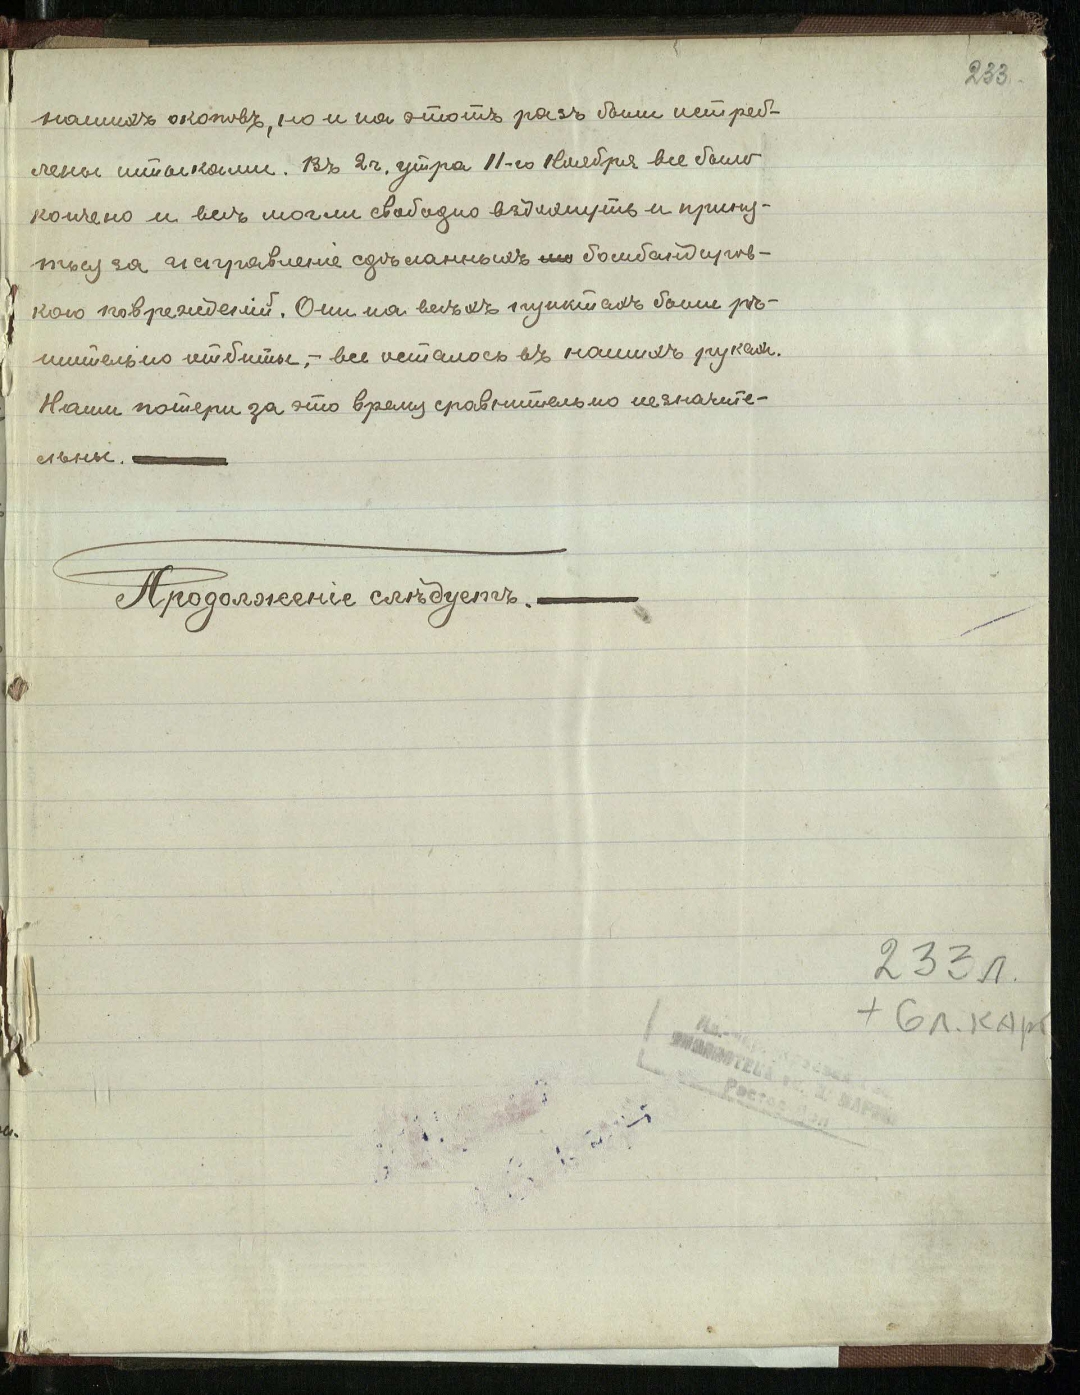 233.
нашихъ окоповъ, но и на этотъ разъ были истреб-
лены штыками. Въ 2ч. утра 11-го Ноября все было
кончено и всѣ могли свободно вздохнуть и приня-
ться за исправленіе сдѣланныхъ бомбандиров-
кою поврежденій. Они на всѣхъ пунктахъ были рѣ-
шительно отбиты, - все осталось въ нашихъ рукахъ.
Наши потери за это время сравнительно незначите-
льны.
Продолженіе слѣдуетъ.
233 л.
+ 6 л. карт
БИБЛИОТЕКА
Ростов